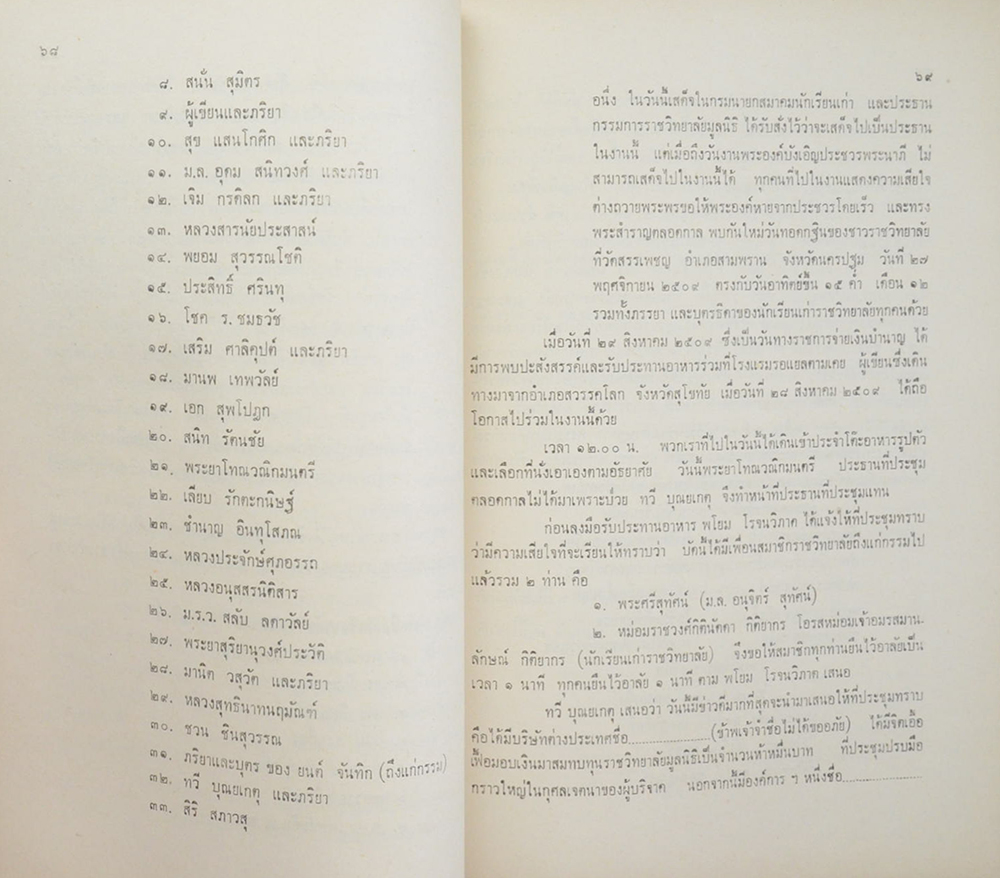 ๖๘
๘. สนั่น สุมิตร
๙. ผู้เขียนและภริยา
๑๐. สุข แสนโกศิก และภริยา
๑๑. ม.ล. อุดม สนิทวงศ์ และภริยา
๑๒. เจิม กรดิลก และภริยา
๑๓. หลวงสารนัยประสาสน์
๑๔. พยอม สุวรรณโชติ
๑๕. ประสิทธิ์ ศรินทุ
๑๖. โชค ร. ชมธวัช
๑๗. เสริม ศาลิคุปต์ และภริยา
๑๘. มานพ เทพวัลย์
๑๙. เอก สุพโปฎก
๒๐. สนิท รัตนชัย
๒๑. พระยาโทณวณิกมนตรี
๒๒. เลียบ รักตะกนิษฐ์
๒๓. ชำนาญ อินทุโสภณ
๒๔. หลวงประจักษ์ศุภอรรถ
๒๕. หลวงอนุสสรนิติสาร
๒๖. ม.ร.ว. สลับ ลดาวัลย์
๒๗. พระยาสุริยานุวงศ์ประวัติ
๒๘. มานิต วสุวัต และภริยา
๒๙. หลวงสุทธินาทนฤมัณฑ์
๓๐. ชวน ชินสุวรรณ
๓๑. ภริยาและบุตร ของ ยนต์ จันทิก (ถึงแก่กรรม)
๓๒. ทวี บุณยเกตุ และภริยา
๓๓. สิริ สภาวสุ
๖๙
อนึ่ง ในวันนี้เสด็จในกรมนายกสมาคมนักเรียนเก่า และประธาน
กรรมการราชวิทยาลัยมูลนิธิ ได้รับสั่งไว้ว่าจะเสด็จไปเป็นประธาน
ในงานนี้ แต่เมื่อถึงวันงานพระองค์บังเอิญประชวรพระนาภี ไม่
สามารถเสด็จไปในงานนี้ได้ ทุกคนที่ไปในงานแสดงความเสียใจ
ต่างถวายพระพรขอให้พระองค์หายจากประชวรโดยเร็ว และทรง
พระสำราญตลอดกาล พบกันใหม่วันทอดกฐินของชาวราชวิทยาลัย
ที่วัดสรรเพชญ อำเภอสามพราน จังหวัดนครปฐม วันที่ ๒๗
พฤศจิกายน ๒๕๐๙ ตรงกับวันอาทิตย์ขึ้น ๑๕ ค่ำ เดือน ๑๒
รวมทั้งภรรยา และบุตรธิดาของนักเรียนเก่าราชวิทยาลัยทุกคนด้วย
เมื่อวันที่ ๒๙ สิงหาคม ๒๕๐๙ ซึ่งเป็นวันทางราชการจ่ายเงินบำนาญ ได้
มีการพบปะสังสรรค์และรับประทานอาหารร่วมที่โรงแรมรอแยลตามเคย ผู้เขียนซึ่งเดิน
ทางมาจากอำเภอสวรรคโลก จังหวัดสุโขทัย เมื่อวันที่ ๒๘ สิงหาคม ๒๕๐๙ ได้ถือ
โอกาสไปร่วมในงานนี้ด้วย
เวลา ๑๒.๐๐ น. พวกเราที่ไปในวันนี้ได้เดินเข้าประจำโต๊ะอาหารรูปตัว
และเลือกที่นั่งเอาเองตามอัธยาศัย วันนี้พระยาโทณวณิกมนตรี ประธานที่ประชุม
ตลอดกาลไม่ได้มาเพราะป่วย ทวี บุณยเกตุ จึงทำหน้าที่ประธานที่ประชุมแทน
ก่อนลงมือรับประทานอาหาร พโยม โรจนวิภาค ได้แจ้งให้ที่ประชุมทราบ
ว่ามีความเสียใจที่จะเรียนให้ทราบว่า บัดนี้ได้มีเพื่อนสมาชิกราชวิทยาลัยถึงแก่กรรมไป
แล้วรวม ๒ ท่าน คือ
๑. พระศรีสุทัศน์ (ม.ล. อนุจิตร์ สุทัศน์)
๒. หม่อมราชวงศ์กิตินัดดา กิติยากร โอรสหม่อมเจ้าอมรสมาน-
ลักษณ์ กิติยากร (นักเรียนเก่าราชวิทยาลัย) จึงขอให้สมาชิกทุกท่านยืนไว้อาลัยเป็น
เวลา ๑ นาที ทุกคนยืนไว้อาลัย ๑ นาที ตาม พโยม โรจนวิภาค เสนอ
ทวี บุณยเกตุ เสนอว่า วันนี้มีข่าวดีมากที่สุดจะนำมาเสนอให้ที่ประชุมทราบ
คือได้มีบริษัทต่างประเทศชื่อ..................(ข้าพเจ้าจำชื่อไม่ได้ขออภัย) ได้มีจิตเอื้อ
เฟื้อมอบเงินมาสมทบทุนราชวิทยาลัยมูลนิธิเป็นจำนวนห้าหมื่นบาท ที่ประชุมปรบมือ
กราวใหญ่ในกุศลเจตนาของผู้บริจาค นอกจากนี้มีองค์การ ฯ หนึ่งชื่อ..................